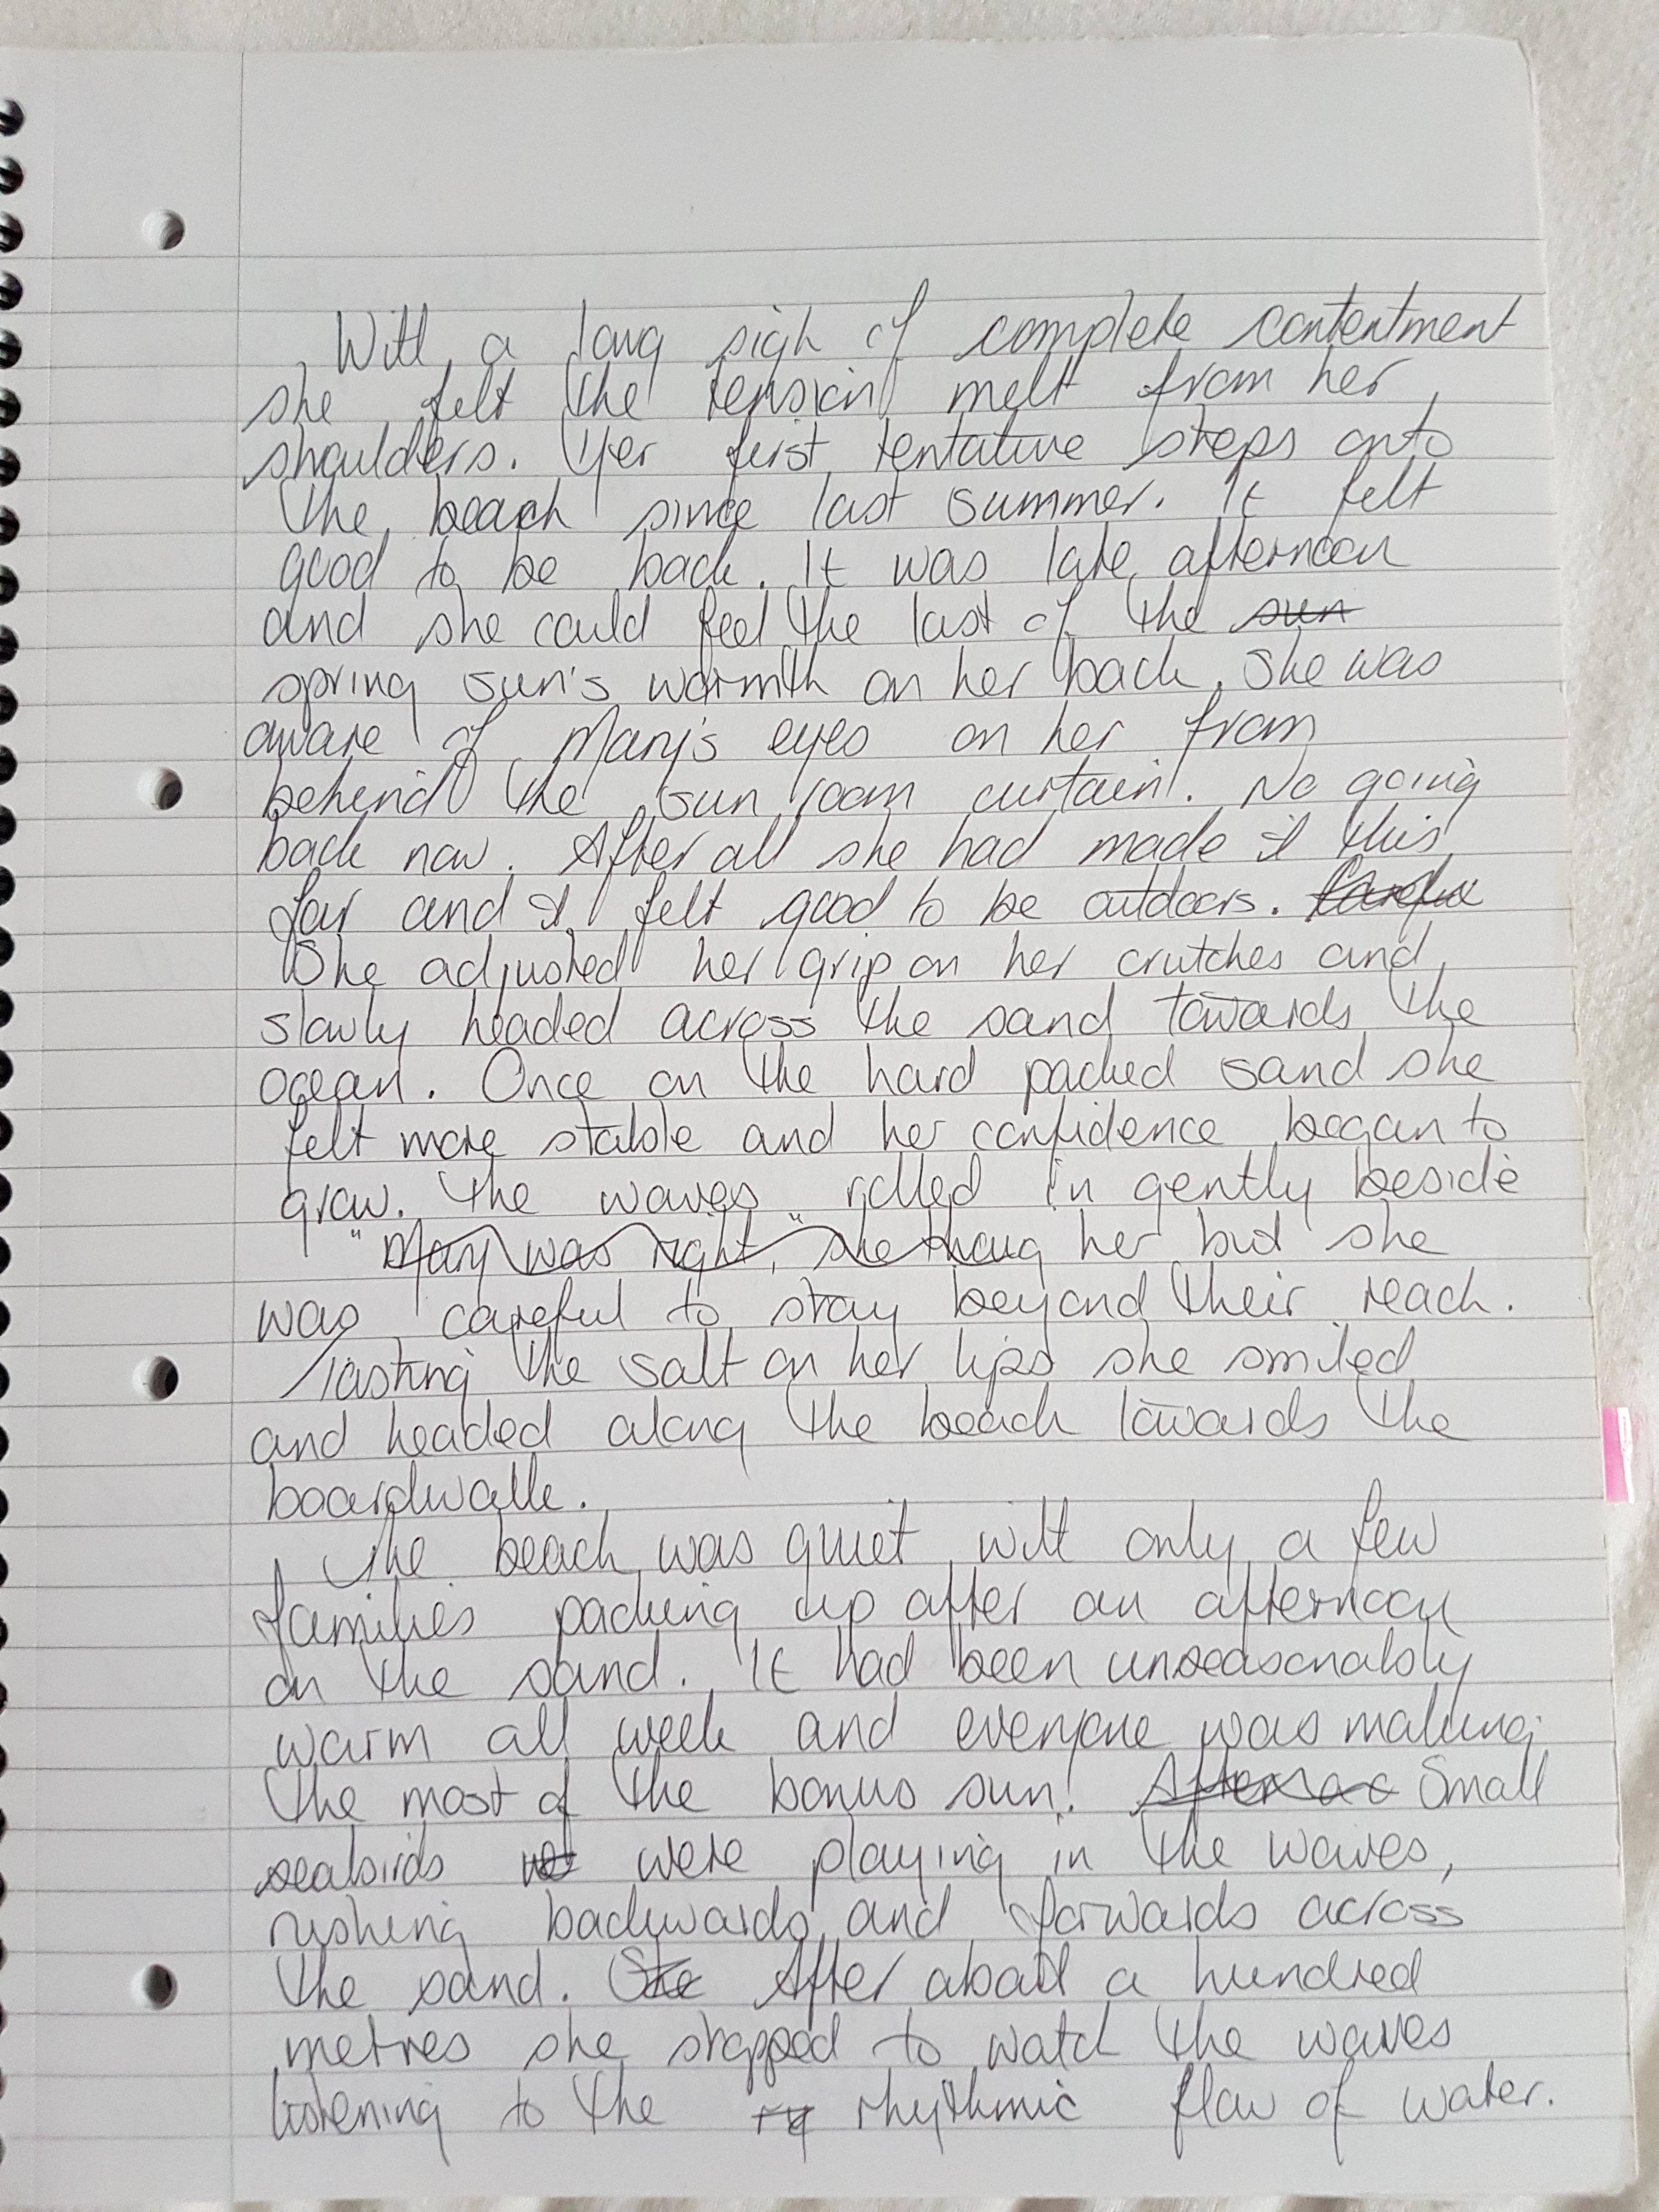 With a long sigh of complete contentment
she felt the tension melt from her
shoulders. Her first tentative steps onto
the beach since last summer. It felt
good to be back. It was late afternoon
and she could feel the last of the sun
spring sun's warmth on her back. She was
aware of Mary's eyes on her from
behind the sun room curtain. No going
back now. After all she had made it this
far and it felt good to be outdoors.
She adjusted her grip on her crutches and
slowly headed across the sand towards the
ocean. Once on the hard packed sand she
felt more stable and her confidence began to
grow. The waves rolled in gently beside
"Mary was right," she thoug her but she
was careful to stay beyond their reach.
Tasting the salt on her lips she smiled
and headed along the beach towards the
boardwalk.
The beach was quiet with only a few
families packing up after an afternoon
on the sand. It had been unseasonably
warm all week and everyone was making
the most of the bonus sun. Small
seabirds were playing in the waves,
rushing backwards and forwards across
the sand. She After about a hundred
metres she stopped to watch the waves
listening to the ry rhythmic flow of water.